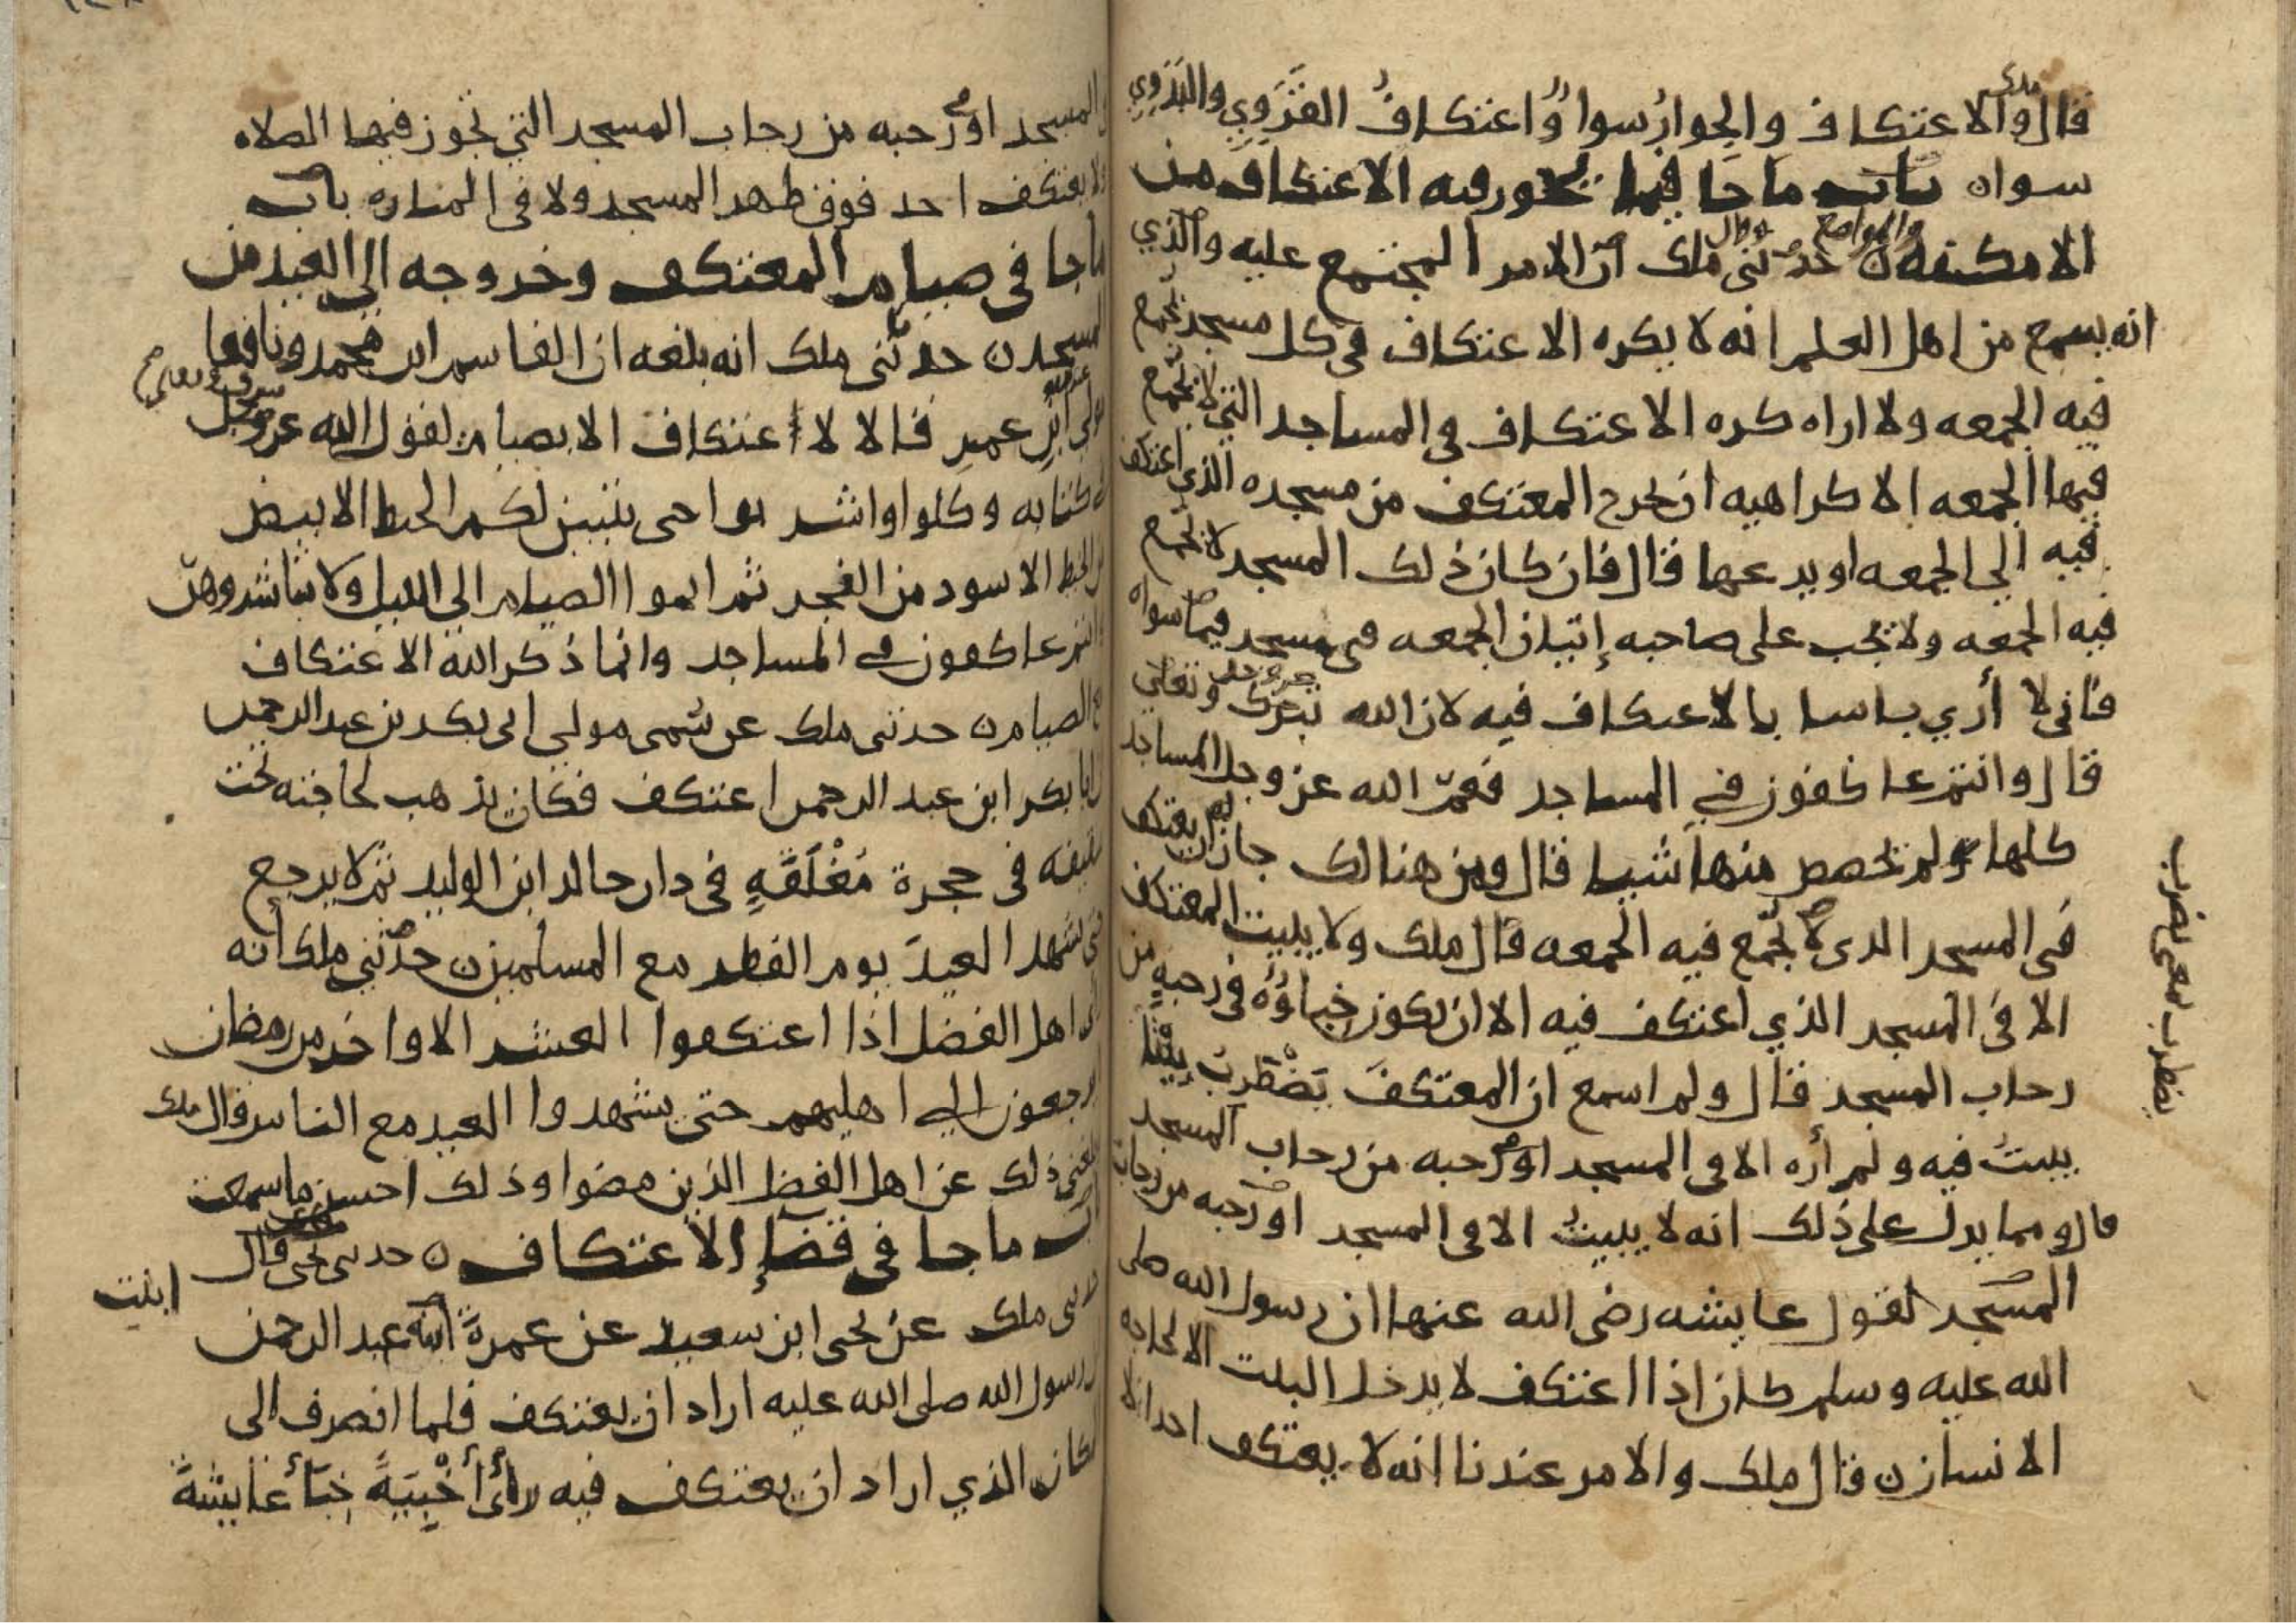 قال والاعتكاف والجوار سوا واعتكاف القروي والبدوي
سواه باب ما جا فيما تجوز فيه الاعتكاف من
الامكنه حدثني ملك ان الامر المجتمع عليه والذي
انه يسمع من اهل العلم انه لا يكره الاعتكاف في كل مسجد تجمع
فيه الجمعه ولا اراه كره الاعتكاف في المساجد التي لا تجمع
فيها الجمعه الا كراهيه ان يخرج المعتكف من مسجده الذي اعتكف
فيه الي الجمعه او يدعها قال فان كان ذلك المسجد لا تجمع
فيه الجمعه ولا تجب على صاحبه إتيان الجمعه في مسجد فيما سواه
فاني لا أري باسا بالاعتكاف فيه لان الله تبرك وتعلي
قال وانتم عاكفون في المساجد فعمّ الله عز وجل المساجد
كلها ولم تخصص منها شيا قال ومن هنالك جاز ان يعتكف
في المسجد الذي لا تجمّع فيه الجمعه قال ملك ولا يبيت المعتكف
الا في المسجد الذي اعتكف فيه الا ان يكون خباؤه في رحبه من
رحاب المسجد قال ولم اسمع ان المعتكف يضطرب بيتا
يبيت فيه ولم أره الا في المسجد او رحبه من رحاب المسجد
قال ومما يدل على ذلك انه لا يبيت الا في المسجد او رحبه من رحاب
المسجد لقول عايشه رضي الله عنها ان رسول الله صلى
الله عليه وسلم كان اذا اعتكف لا يدخل البيت الا لحاجه
الانسان قال ملك والامر عندنا انه لا يعتكف احد الا
يضطرب بمعنى يضرب
المسجد او رحبه من رحاب المسجد التي تجوز فيها الصلاه
ولا يعتكف احد فوق ظهر المسجد ولا في المناره باب
ما جا في صيام المعتكف وخروجه الى العيد من
المسجد حدثني ملك انه بلغه ان القاسم ابن محمد ونافعا
مولى ابن عمر قالا لا اعتكاف الا بصيام لقول الله عز وجل
في كتابه وكلوا واشربوا حتى يتبين لكم الخيط الابيض
من الخيط الاسود من الفجر ثم اتموا الصيام الى الليل ولا تباشروهنّ
وانتم عاكفون في المساجد وانما ذكر الله الاعتكاف
مع الصيام حدثني ملك عن سمي مولي ابي بكر بن عبد الرحمن
ان ابا بكر ابن عبد الرحمن اعتكف فكان يذهب لحاجته تحت
سقيفه في حجرة مُغْلَقَةٍ في دار خالد ابن الوليد ثم لا يرجع
حتى يشهد العيدَ يوم الفطر مع المسلمين حدثني ملك انه
راى اهل الفضل اذا اعتكفوا العشر الاواخر من رمضان
لا يرجعون الي اهليهم حتى يشهدوا العيد مع الناس قال ملك
بلغني ذلك عن اهل الفضل الذين مضوا وذلك احسن ما سمعت
باب ما جا في قضإ الاعتكاف حدثني يحيى قال
حدثني ملك عن يحيى ابن سعيد عن عمرة ابنة عبد الرحمن
ابنت
ان رسول الله صلى الله عليه اراد ان يعتكف فلما انصرف الى
المكان الذي اراد ان يعتكف فيه رأى أَخْبِيَةً خِبَأَ عايشةَ